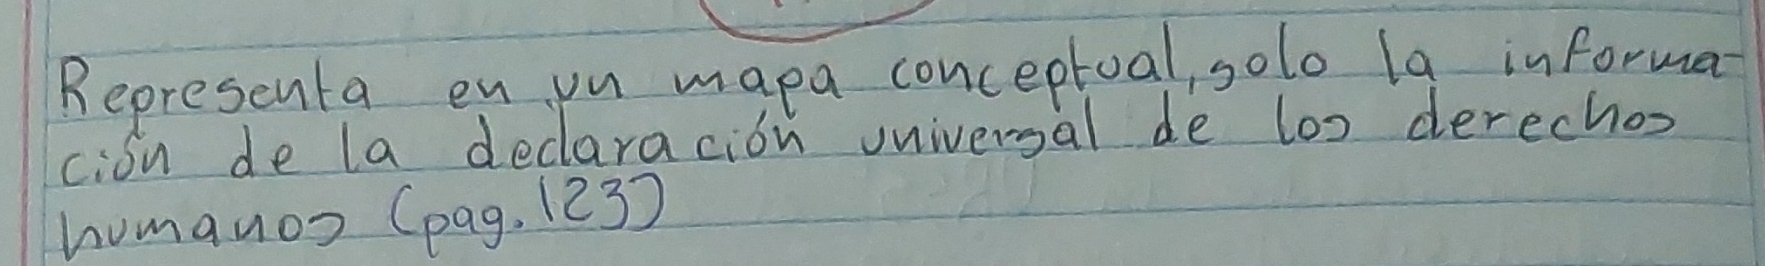 Representa en un mapa conceptual, solo la informa-
ción de la declaración universal de los derechos
humanos (pag. 123)